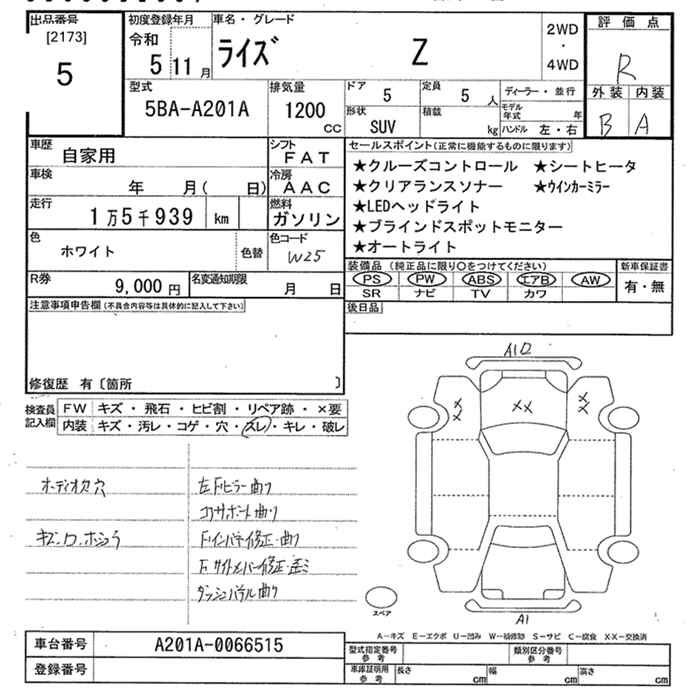 出品番号
[2173]
5
初度登録年月
令和
5 11月
車名・グレード
ライズ Z
2WD
・
4WD
評価点
R
外装 内装
B A
型式
5BA-A201A
排気量
1200
CC
ドア 5
定員 5 人
形状 SUV
積載 kg
ディーラー・並行
モデル年式 年
ハンドル 左・右
車歴 自家用
シフト FAT
車検 年 月( 日)
冷房 AAC
走行 1万5千939 km
燃料 ガソリン
色 ホワイト 色替
色コード W25
R券 9,000円
名変通知期限 月 日
セールスポイント(正常に機能するものに限ります)
★クルーズコントロール ★シートヒータ
★クリアランスソナー ★ウインカーミラー
★LEDヘッドライト
★ブラインドスポットモニター
★オートライト
装備品 (純正品に限り○をつけてください) 新車保証書
PS PW ABS エアB AW 有・無
SR ナビ TV カワ
後日品
注意事項申告欄(不具合内容等は具体的に記入して下さい)
修復歴 有〔箇所 〕
検査員記入欄
FW キズ・飛石・ヒビ割・リペア跡・×要
内装 キズ・汚レ・コゲ・穴・スレ・キレ・破レ
オーディオ穴
左Fピラー曲り
コアサポート曲り
Fインパネ修正・曲り
ダッシュパネル曲り
A1
××
スペア
A1
A-キズ E-エクボ U-凹み W-補修跡 S-サビ C-腐食 XX-交換済
車台番号 A201A-0066515
登録番号
型式指定番号 参考
類別区分番号 参考
車庫証明用 参考
長さ cm 幅 cm 高さ cm